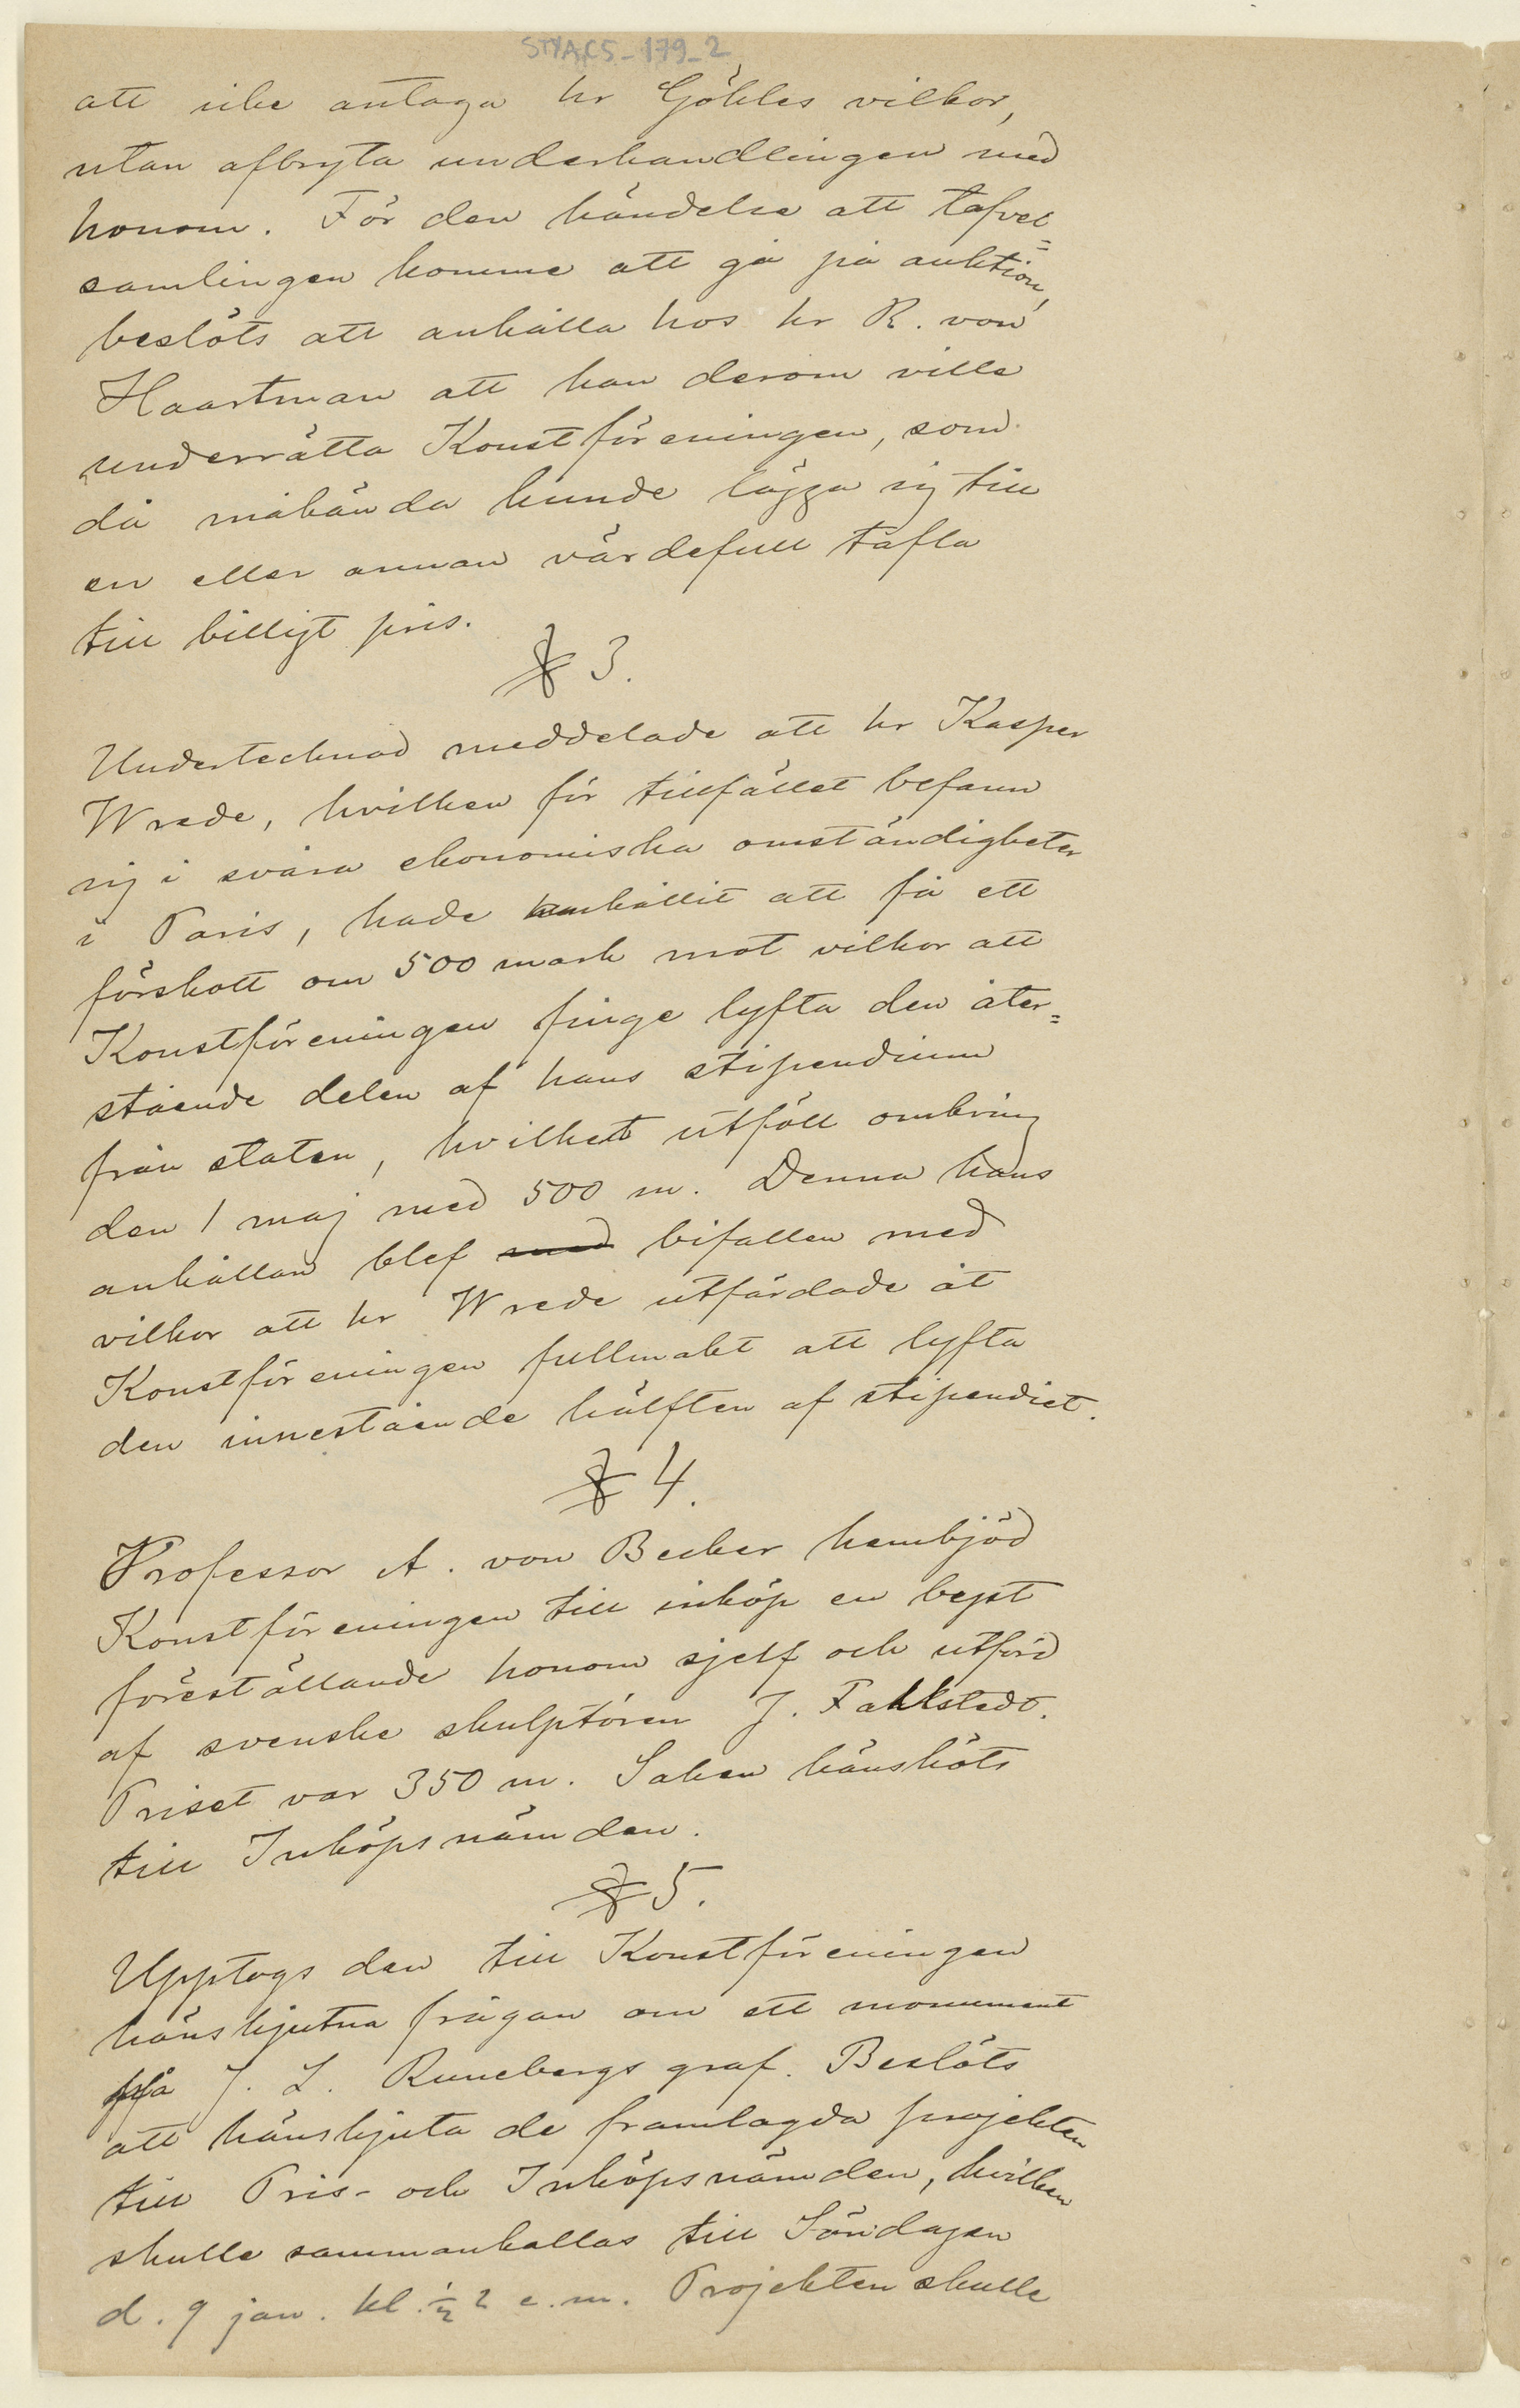 STYACS-179_2
att icke antaga hr Göhles vilkor,
utan afbryta underhandlingen med
honom. För den händelse att tafvel=
samlingen komme att gå på auktion,
beslöts att anhålla hos hr R. von
Haartman att han derom ville
underrätta Konstföreningen, som
då måhända kunde lägga sig till
en eller annan värdefull tafla
till billigt pris.
§ 3.
Undertecknad meddelade att hr Kasper
Wrede, hvilken för tillfället befann
sig i svåra ekonomiska omständigheter
i Paris, hade anhållit att få ett
förskott om 500 mark mot vilkor att
Konstföreningen finge lyfta den åter=
stående delen af hans stipendium
från staten, hvilket utföll omkring
den 1 maj med 500 m. Denna hans
anhållan blef med bifallen med
vilkor att hr Wrede utfärdade åt
Konstföreningen fullmakt att lyfta
den innestående hälften af stipendiet.
§ 4.
Professor A. von Becker hembjöd
Konstföreningen till inköp en byst
föreställande honom sjelf och utförd
af svenske skulptören J. Fahlstedt.
Priset var 350 m. Saken hänsköts
till Inköpsnämnden.
§ 5.
Upptogs den till Konstföreningen
hänskjutna frågan om ett monument
på J. L. Runebergs graf. Beslöts
att hänskjuta de framlagda projekten
till Pris- och Inköpsnämnden, hvilken
skulle sammankallas till Söndagen
d. 9 jan. kl. ½ 2 e.m. Projekten skulle